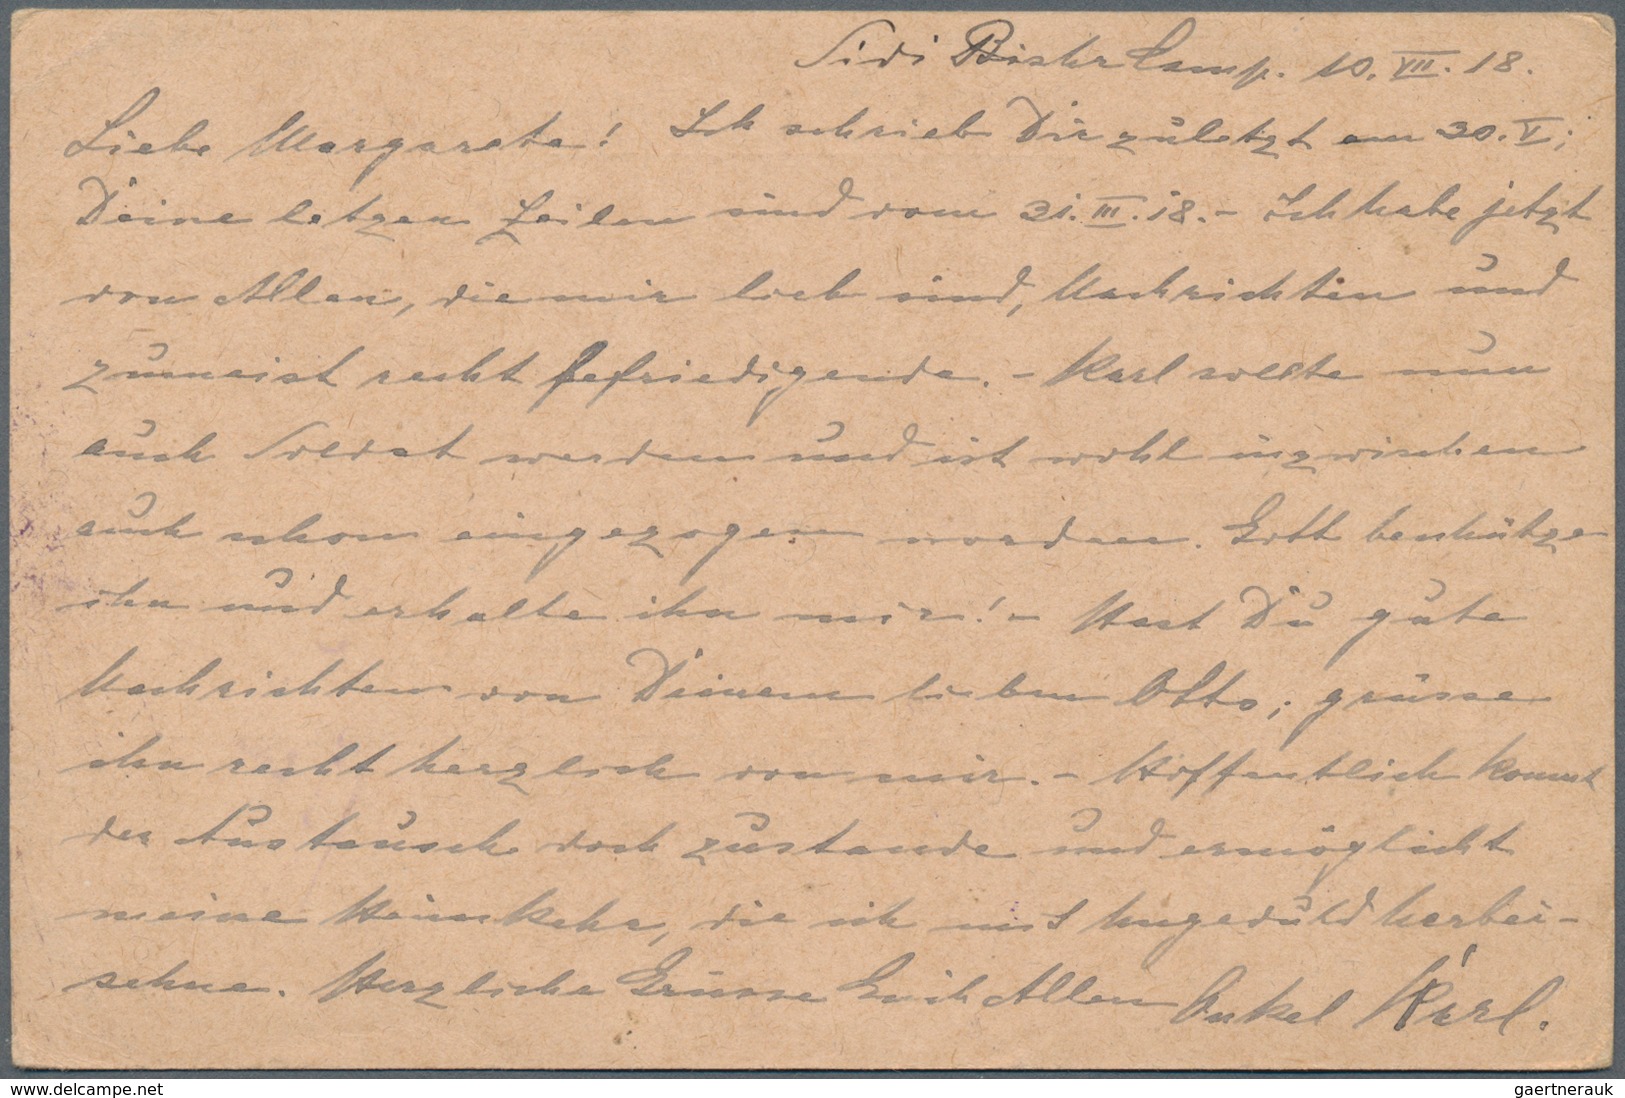 Sidi Bishr Camp. 10. VII. 18.
Liebe Margarete! Ich schrieb Dir zuletzt am 30. V;
Deine letzen Zeilen sind vom 31. III. 18. - Ich habe jetzt
von Allen, die mir lieb sind, Nachrichten und
zumeist recht befriedigende. - Karl sollte nun
auch Soldat werden und ist wohl inzwischen
auch schon eingezogen worden. Gott beschütze
ihn und erhalte ihn mir! - Hast Du gute
Nachrichten von Deinem lieben Otto; grüsse
ihn recht herzlich von mir. - Hoffentlich kommt
der Austausch doch zustande und ermöglicht
meine Heimkehr, die ich mit Ungeduld herbei-
sehne. Herzliche Grüsse Euch Allen Onkel Karl.
www.delcampe.net
gaertnerauk